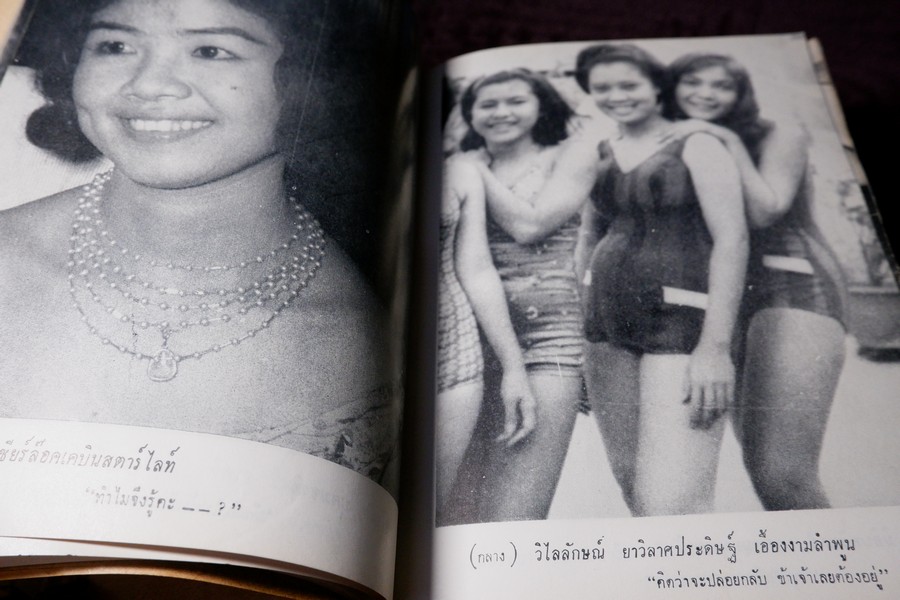 ชียร์ล๊อคเคบินสตาร์ไลท์
“ทำไมจึงรู้คะ — — ? ”
(กลาง) วิไลลักษณ์ ยาวิลาศประดิษฐ์ เอื้องงามลำพูน
“คิดว่าจะปล่อยกลับ ข้าเจ้าเลยต้องอยู่”